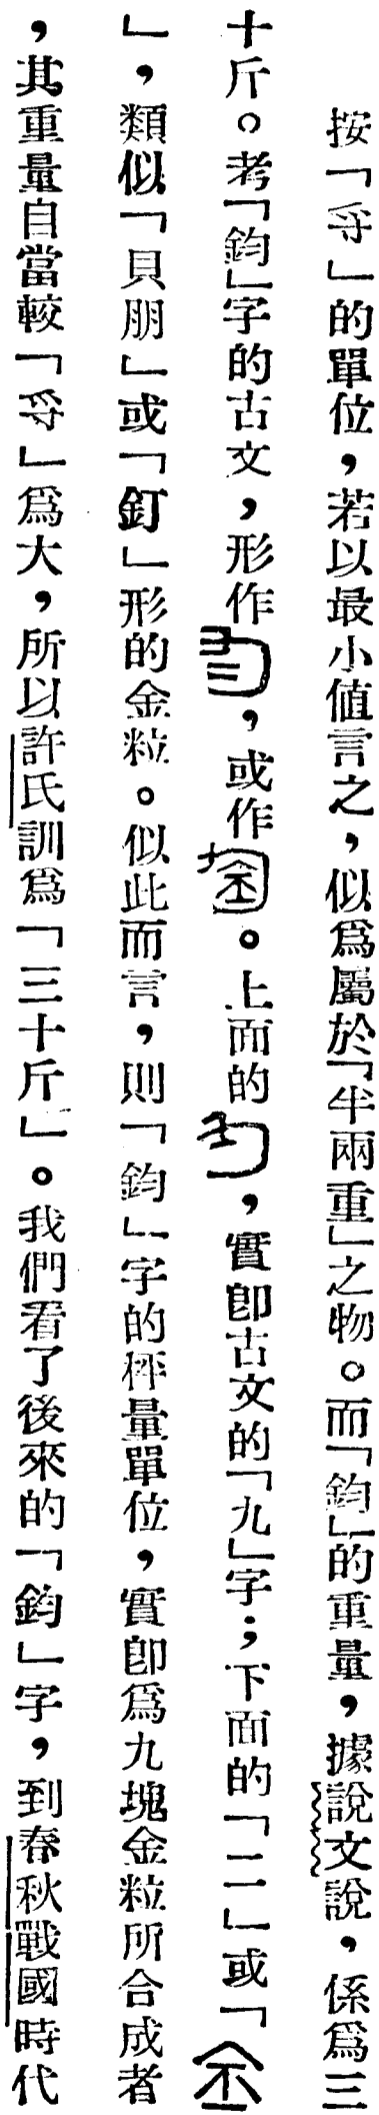 按「寽」的單位，若以最小値言之，似爲屬於「半兩重」之物。而「鈞」的重量，據說文說，係爲三
十斤。考「鈞」字的古文，形作，或作。上面的，實卽古文的「九」字；下面的「二」或「
」，類似「貝朋」或「釘」形的金粒。似此而言，則「鈞」字的秤量單位，實卽爲九塊金粒所合成者
，其重量自當較「寽」爲大，所以許氏訓爲「三十斤」。我們看了後來的「鈞」字，到春秋戰國時代